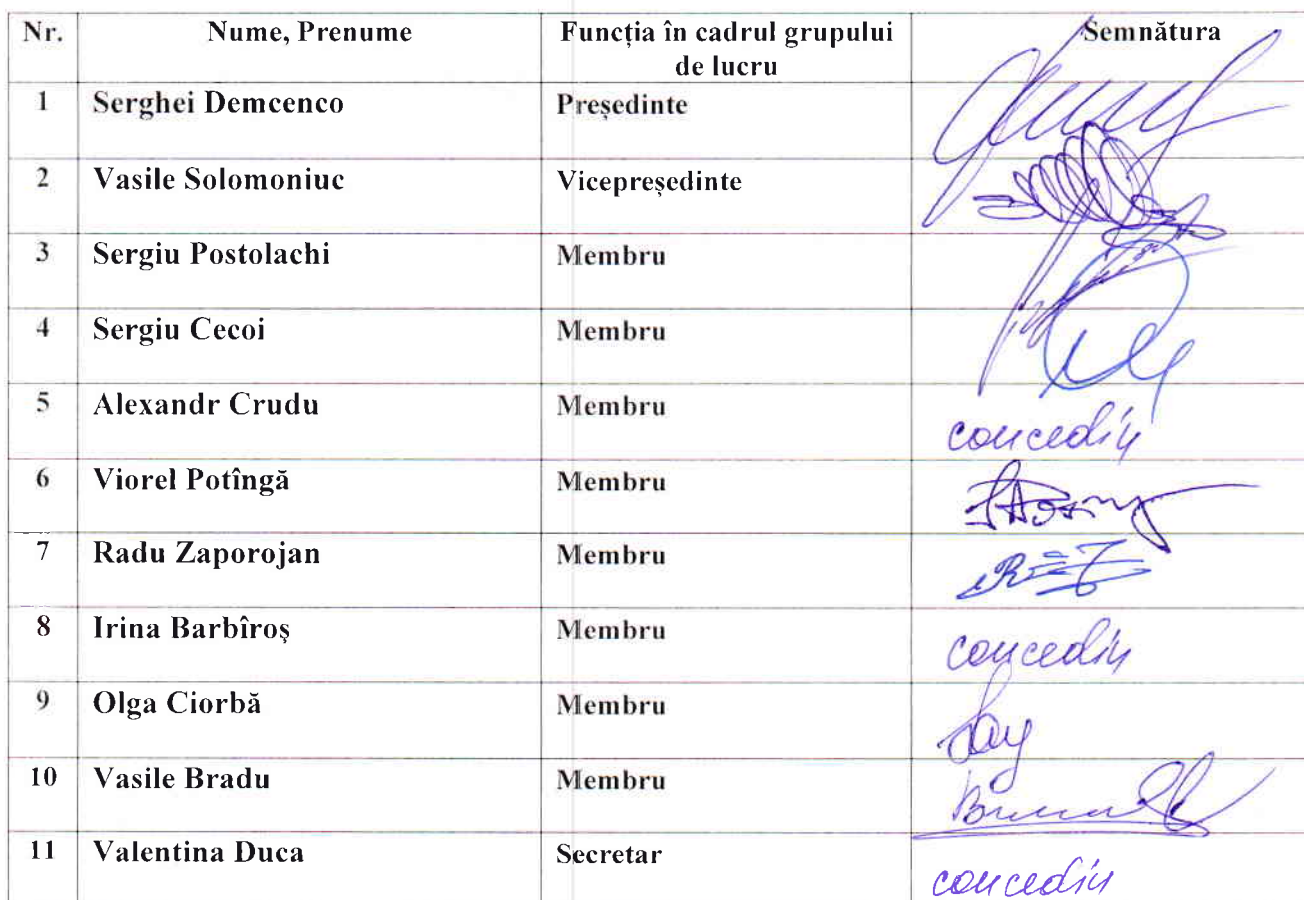 Nr. Nume, Prenume Funcția în cadrul grupului de lucru Semnătura
1 Serghei Demcenco Președinte
2 Vasile Solomoniuc Vicepreședinte
3 Sergiu Postolachi Membru
4 Sergiu Cecoi Membru
5 Alexandr Crudu Membru concediu
6 Viorel Potîngă Membru
7 Radu Zaporojan Membru
8 Irina Barbîroș Membru concediu
9 Olga Ciorbă Membru
10 Vasile Bradu Membru
11 Valentina Duca Secretar concediu